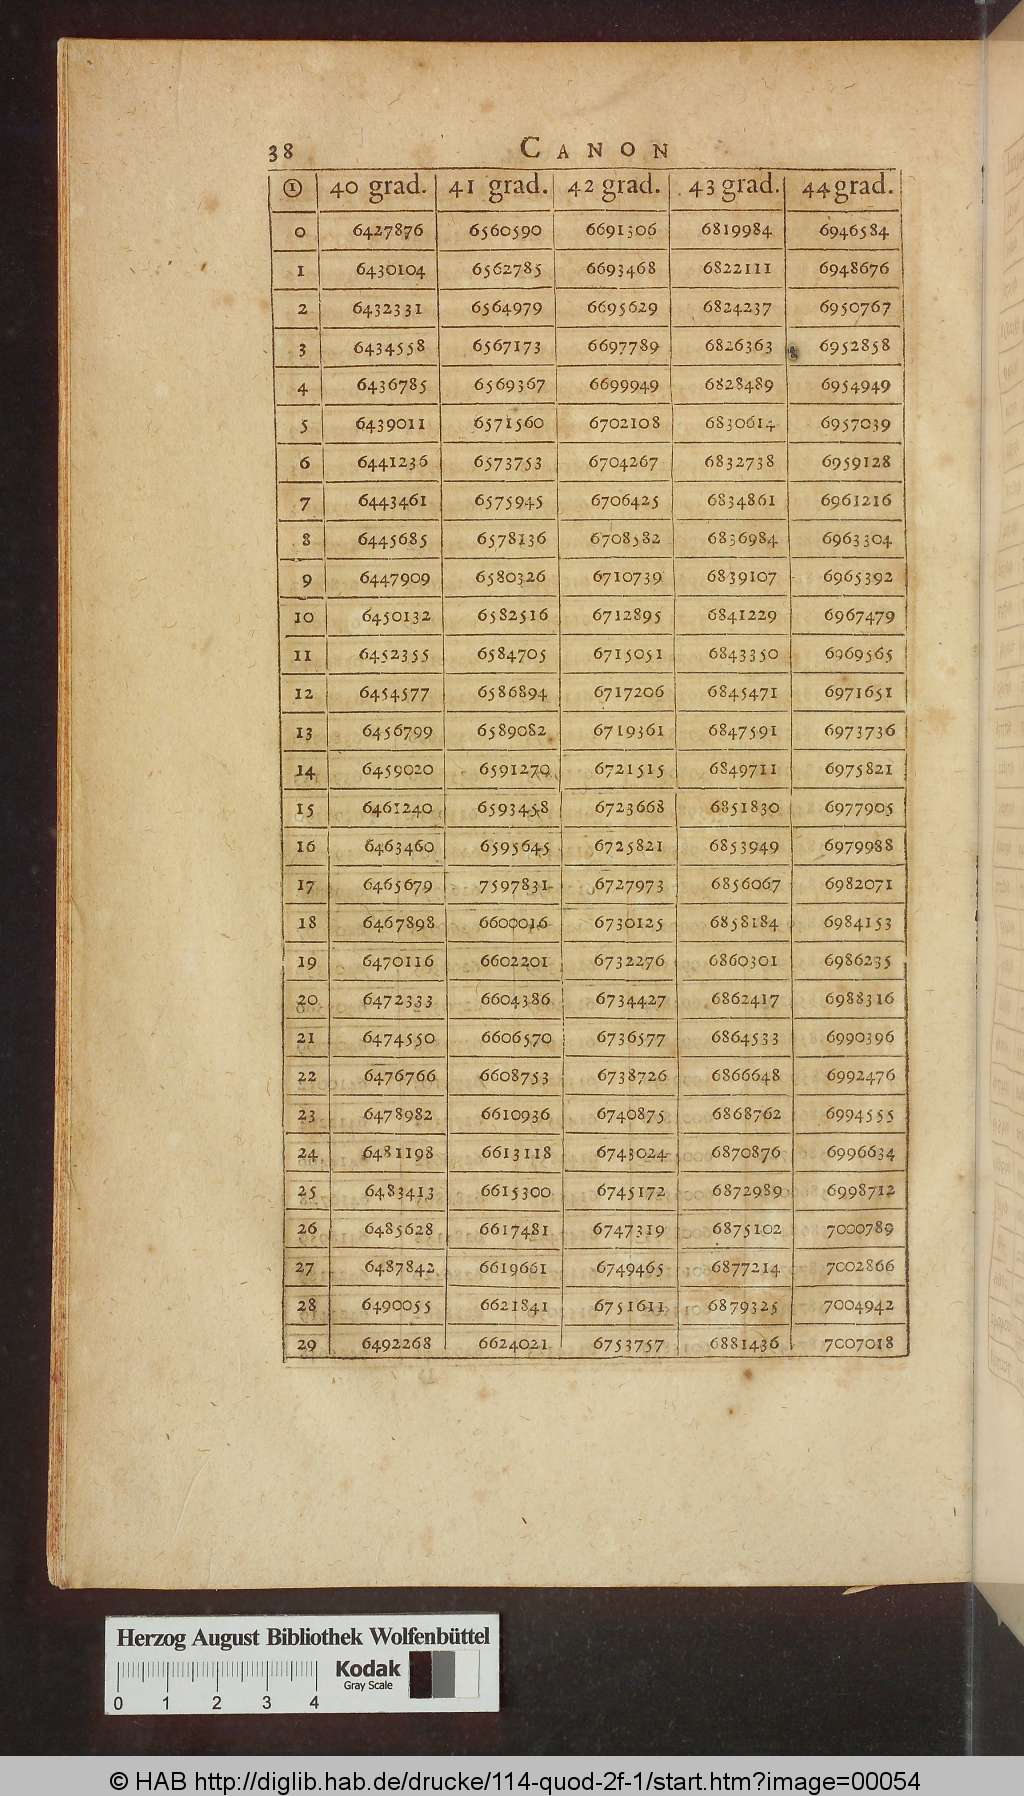 38 CANON
① 40 grad. 41 grad. 42 grad. 43 grad. 44 grad.
0 6427876 6560590 6691306 6819984 6946584
1 6430104 6562785 6693468 6822111 6948676
2 6432331 6564979 6695629 6824237 6950767
3 6434558 6567173 6697789 6826363 6952858
4 6436785 6569367 6699949 6828489 6954949
5 6439011 6571560 6702108 6830614 6957039
6 6441236 6573753 6704267 6832738 6959128
7 6443461 6575945 6706425 6834861 6961216
8 6445685 6578136 6708582 6836984 6963304
9 6447909 6580326 6710739 6839107 6965392
10 6450132 6582516 6712895 6841229 6967479
11 6452355 6584705 6715051 6843350 6969565
12 6454577 6586894 6717206 6845471 6971651
13 6456799 6589082 6719361 6847591 6973736
14 6459020 6591270 6721515 6849711 6975821
15 6461240 6593458 6723668 6851830 6977905
16 6463460 6595645 6725821 6853949 6979988
17 6465679 7597831 6727973 6856067 6982071
18 6467898 6600016 6730125 6858184 6984153
19 6470116 6602201 6732276 6860301 6986235
20 6472333 6604386 6734427 6862417 6988316
21 6474550 6606570 6736577 6864533 6990396
22 6476766 6608753 6738726 6866648 6992476
23 6478982 6610936 6740875 6868762 6994555
24 6481198 6613118 6743024 6870876 6996634
25 6483413 6615300 6745172 6872989 6998712
26 6485628 6617481 6747319 6875102 7000789
27 6487842 6619661 6749465 6877214 7002866
28 6490055 6621841 6751611 6879325 7004942
29 6492268 6624021 6753757 6881436 7007018
Herzog August Bibliothek Wolfenbüttel
Kodak
Gray Scale
0 1 2 3 4
© HAB http://diglib.hab.de/drucke/114-quod-2f-1/start.htm?image=00054